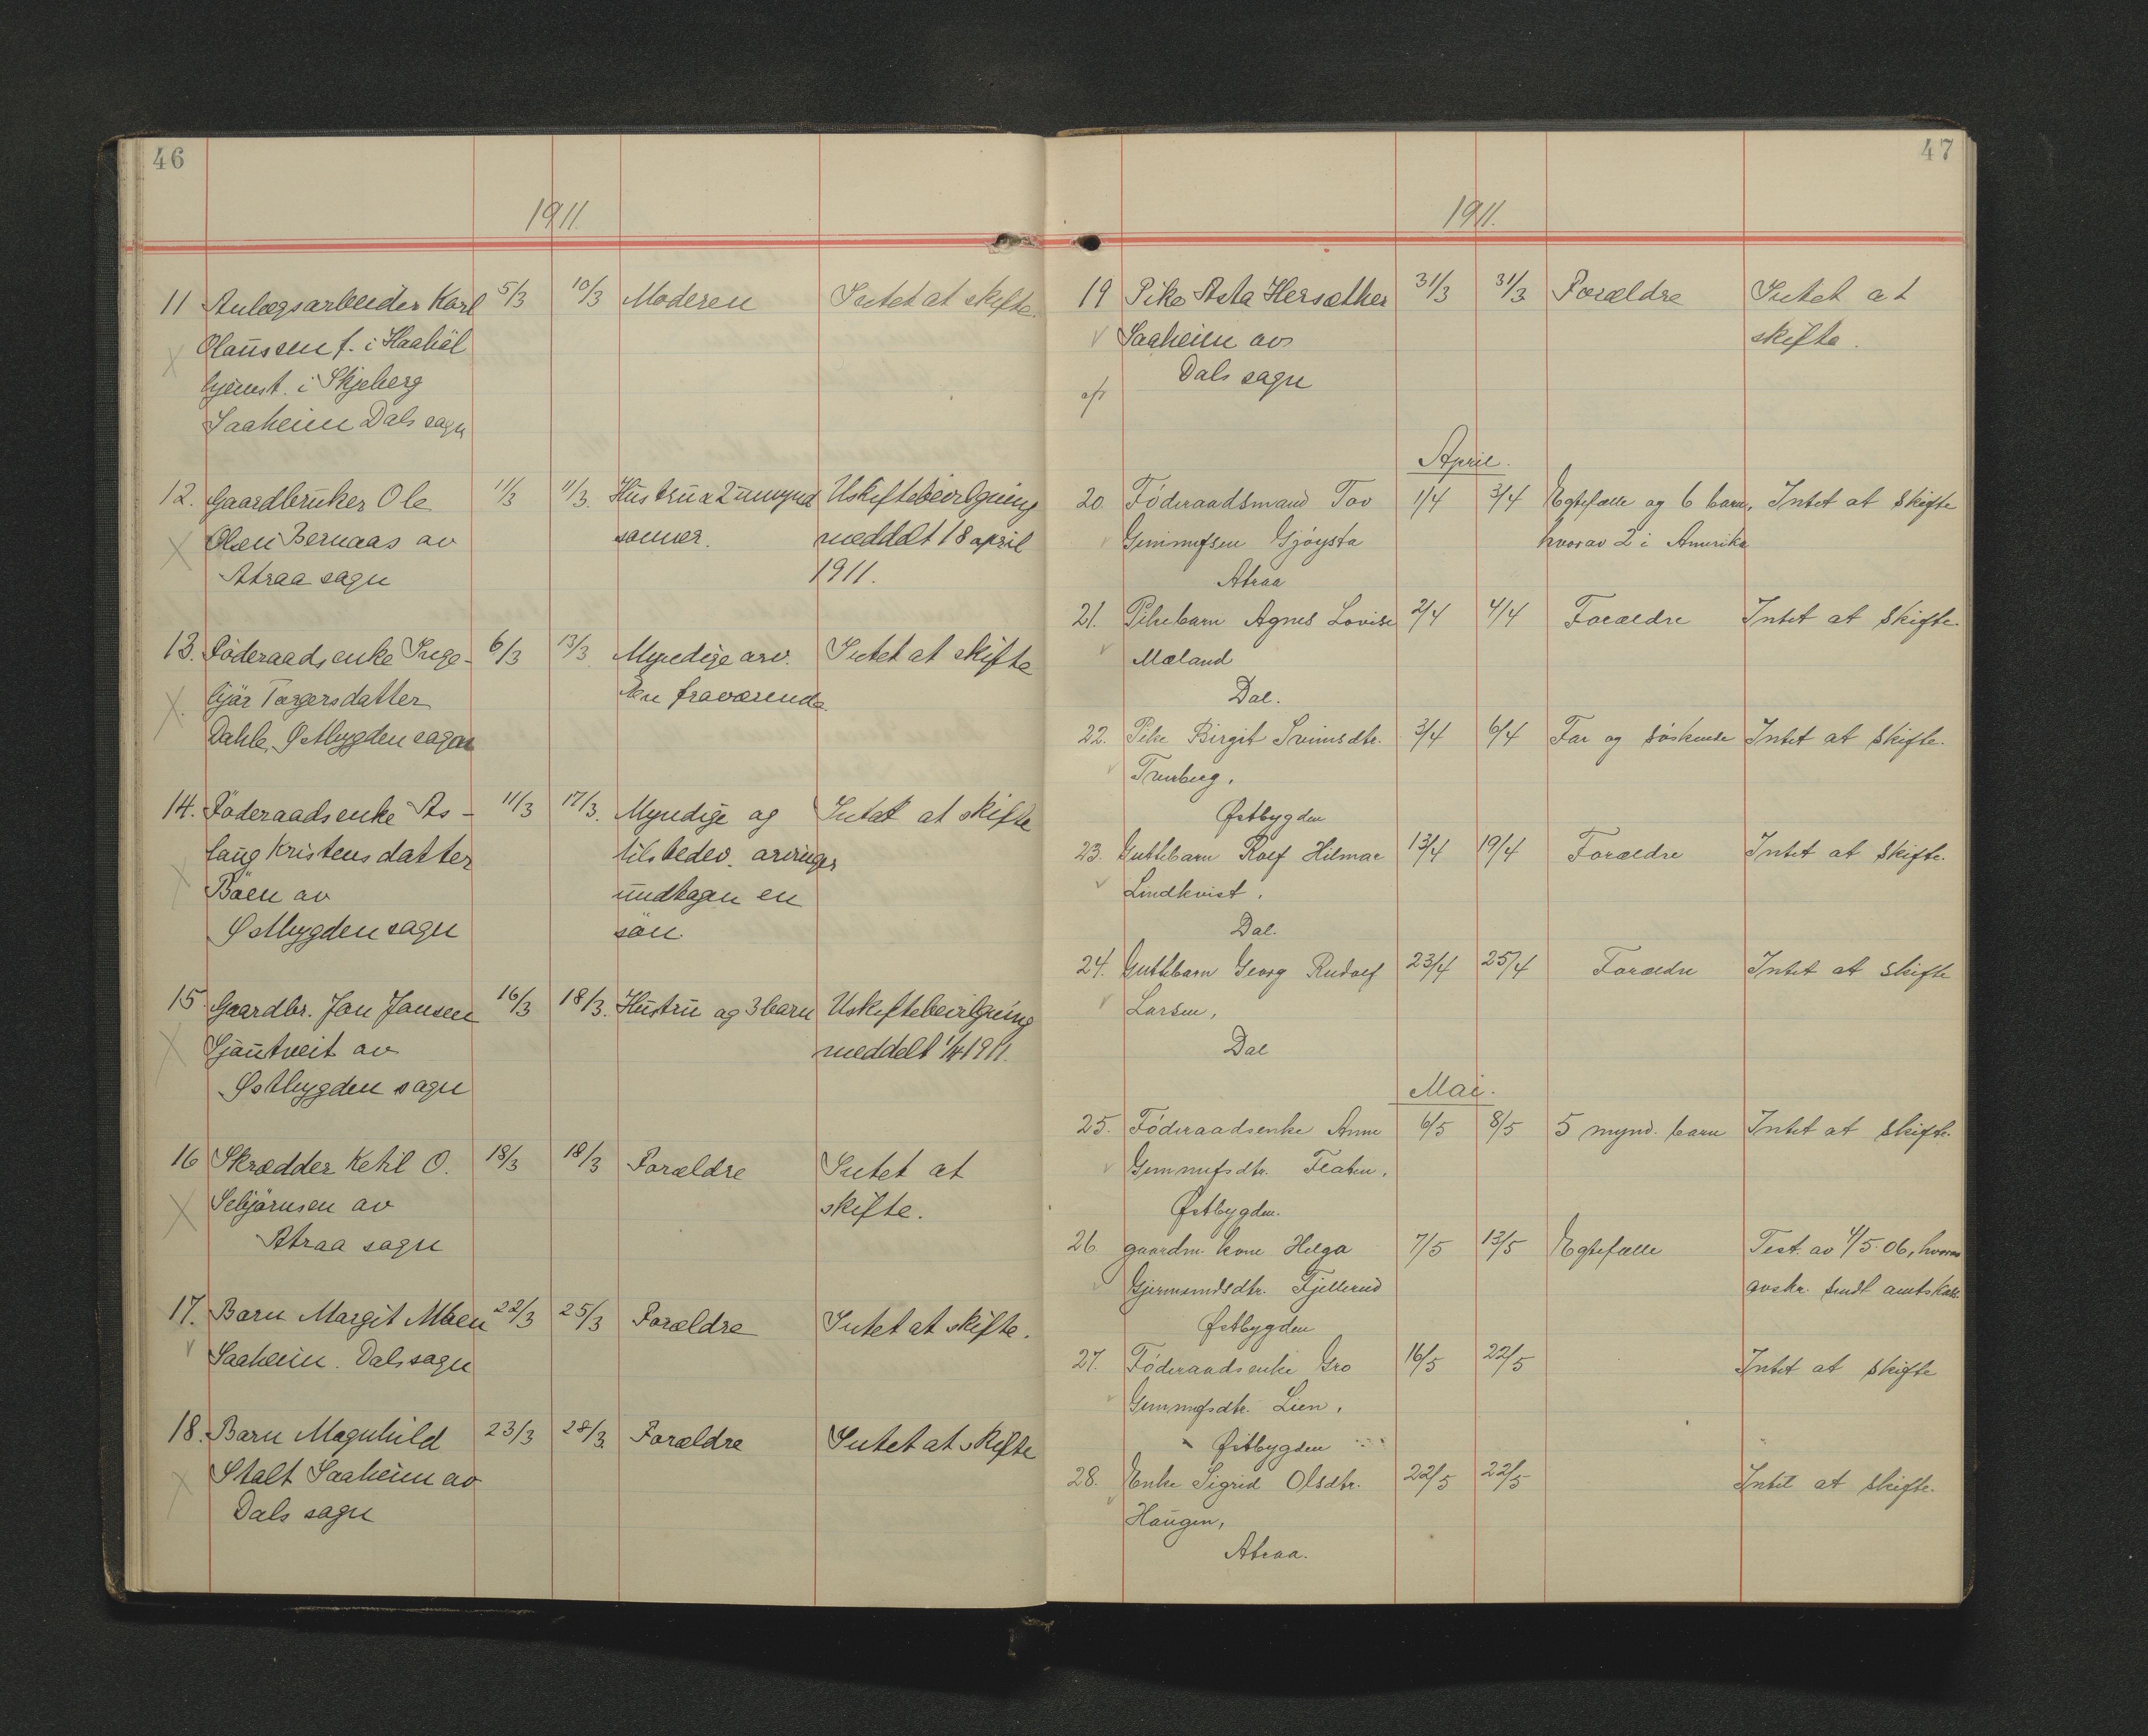 46
1911.
11 Anlægsarbeider Karl 5/3 10/3 Moderen Intet at skifte.
Olaussen f. i Haabøl
hjemst. i Skjeberg
Saaheim Dals sogn
12. Gaardbruker Ole 11/3 11/3. Hustru & 2 umynd Uskiftebevilgning
Olsen Bernaas av sønner. meddelt 18 april
Atraa sogn 1911.
13. Föderaadsenke Inge- 6/3 13/3 Myndige arv. Intet at skifte
björ Torgersdatter fraværende
Dahle, Østbygden sogn
14. Föderaadsenke As- 11/3 17/3. Myndige og Intet at skifte
laug Kristensdatter tilstedev. arvinger
Böen av undtagen en
Østbygden sogn sön.
15 Gaardbr. Jon Jonsen 16/3 18/3. Hustru og 3 barn Uskiftebevilgning
Sjöntveit av meddelt 1/4 1911.
Østbygden sogn
16 Skrædder Ketil O. 18/3 18/3 Forældre Intet at
Selijordsen av skifte.
Atraa sogn
17. Barn Margit Moen 22/3 25/3 Forældre Intet at skifte.
Saaheim. Dals sogn
18. Barn Magnhild 23/3 28/3. Forældre Intet at skifte
Stalt Saaheim av
Dals sogn
47
1911.
19 Pike Asta Hersæther 31/3 31/3 Forældre Intet at
Saaheim av skifte.
Dals sogn
April.
20. Föderaadsmand Tov 1/4 3/4 Egtefælle og 6 barn, Intet at skifte
Gunnufsen Gjöysta hvorav 2 i Amerika
Atraa
21. Pikebarn Agnes Lovise 2/4 4/4 Forældre Intet at skifte.
Mæland
Dal.
22. Pike Birgit Sveinsdtr. 3/4 6/4 Far og söskende Intet at skifte.
Østbygden
23. Guttebarn Rolf Hilmar 13/4 19/4 Forældre Intet at skifte.
Lindkvist.
Dal.
24. Guttebarn Georg Rudolf 23/4 25/4 Forældre Intet at skifte
Larsen,
Dal
Mai.
25. Föderaadsenke Anne 6/5 8/5 5 mynd. barn Intet at skifte.
Gunnufsdtr. Flaten.
Østbygden.
26. gaardm. kone Helga 7/5 13/5 Egtefælle Test. av 4/5 06, hvorav
Gjermundsdtr. Fjellerud avskr. sendt amtskass.
Østbygden
27. Föderaadsenke Gro 16/5 22/5 Intet at skifte
Gunnufsdtr. Lien.
Østbygden
28. Enke Sigrid Olsdtr. 22/5 22/5 Intet at skifte.
Haugen,
Atraa.